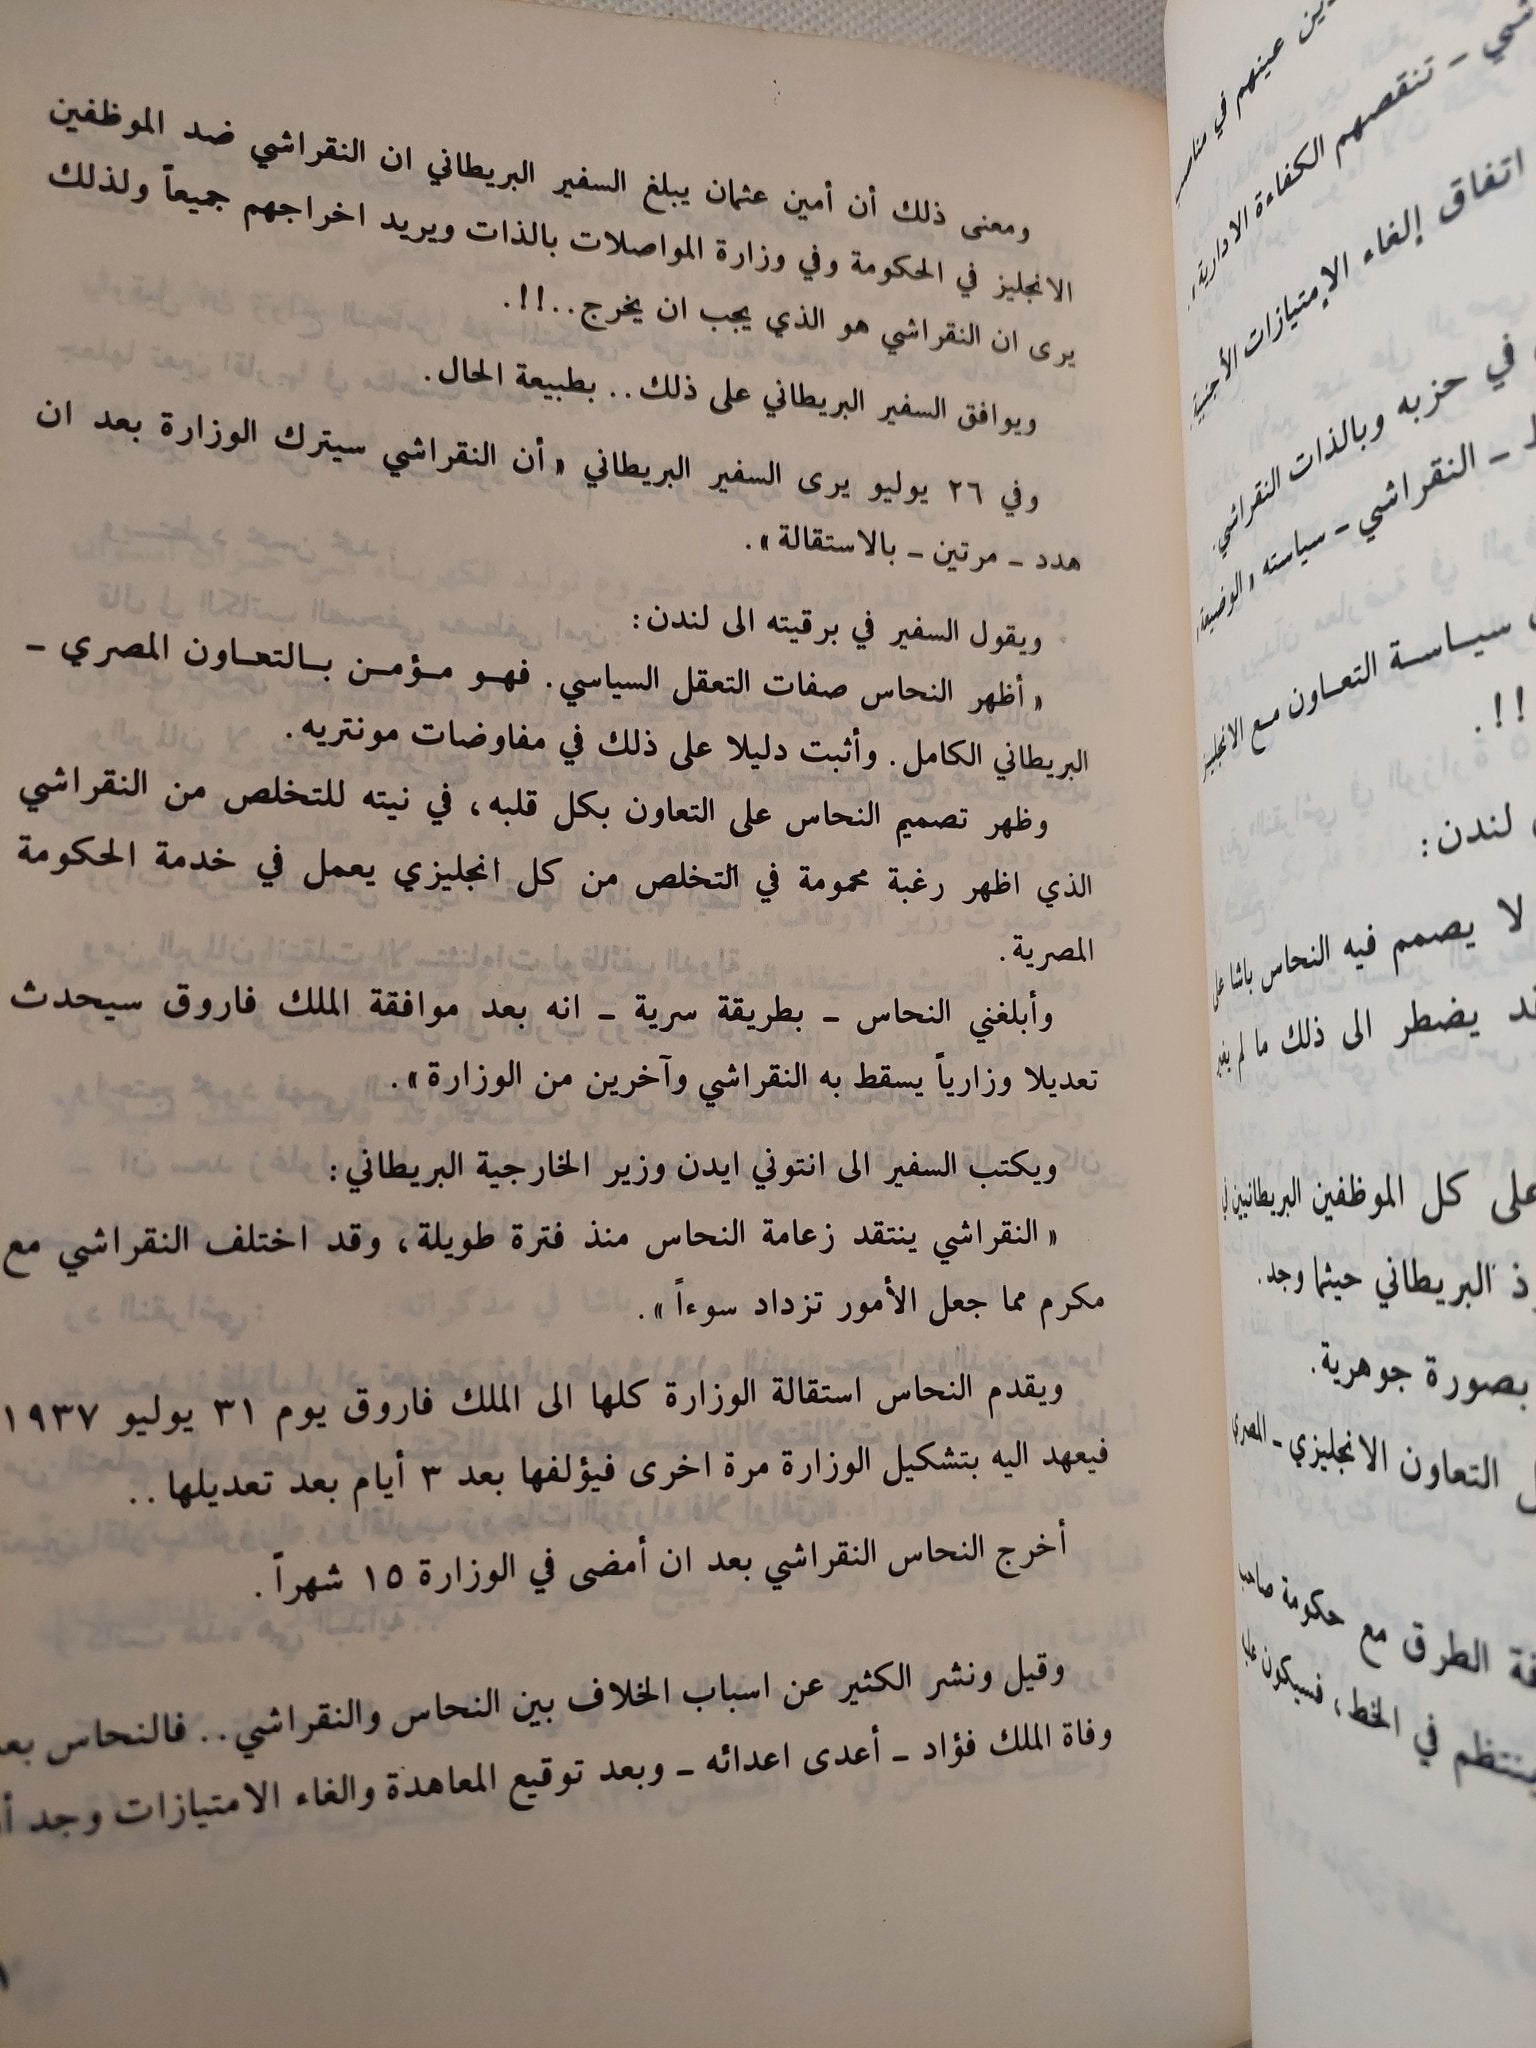 ومعنى ذلك أن أمين عثمان يبلغ السفير البريطاني ان النقراشي ضد الموظفين
الانجليز في الحكومة وفي وزارة المواصلات بالذات ويريد اخراجهم جميعاً ولذلك
يرى ان النقراشي هو الذي يجب ان يخرج..!!.
ويوافق السفير البريطاني على ذلك.. بطبيعة الحال.
وفي ٢٦ يوليو يرى السفير البريطاني « أن النقراشي سيترك الوزارة بعد ان
هدد ـ مرتين ـ بالاستقالة ».
ويقول السفير في برقيته الى لندن:
« أظهر النحاس صفات التعقل السياسي. فهو مؤمن بالتعاون المصري ـ
البريطاني الكامل. وأثبت دليلا على ذلك في مفاوضات مونتريه.
وظهر تصميم النحاس على التعاون بكل قلبه، في نيته للتخلص من النقراشي
الذي اظهر رغبة محمومة في التخلص من كل انجليزي يعمل في خدمة الحكومة
المصرية.
وأبلغني النحاس ـ بطريقة سرية ـ انه بعد موافقة الملك فاروق سيحدث
تعديلا وزارياً يسقط به النقراشي وآخرين من الوزارة ».
ويكتب السفير الى انتوني ايدن وزير الخارجية البريطاني:
« النقراشي ينتقد زعامة النحاس منذ فترة طويلة، وقد اختلف النقراشي مع
مكرم مما جعل الأمور تزداد سوءاً ».
ويقدم النحاس استقالة الوزارة كلها الى الملك فاروق يوم ٣١ يوليو ١٩٣٧
فيعهد اليه بتشكيل الوزارة مرة اخرى فيؤلفها بعد ٣ أيام بعد تعديلها..
أخرج النحاس النقراشي بعد ان أمضى في الوزارة ١٥ شهراً.
وقيل ونشر الكثير عن اسباب الخلاف بين النحاس والنقراشي.. فالنحاس
وفاة الملك فؤاد ـ أعدى اعدائه ـ وبعد توقيع المعاهدة والغاء الامتيازات وجد
عينهم في
ـ تنقصهم الكفاءة الادارية
اتفاق إلغاء الإمتيازات الأجنبية
في حزبه وبالذات النقراشي.
ـ النقراشي ـ سياسته « الوضيعة »
سياسة التعاون مع الانجليز
!!.
لندن:
لا يصمم فيه النحاس باشا على
يضطر الى ذلك ما لم يغير
على كل الموظفين البريطانيين في
البريطاني حيثما وجد.
بصورة جوهرية.
التعاون الانجليزي ـ المصري
الطرق مع حكومة صاحب
ينتظم في الخط، فسيكون